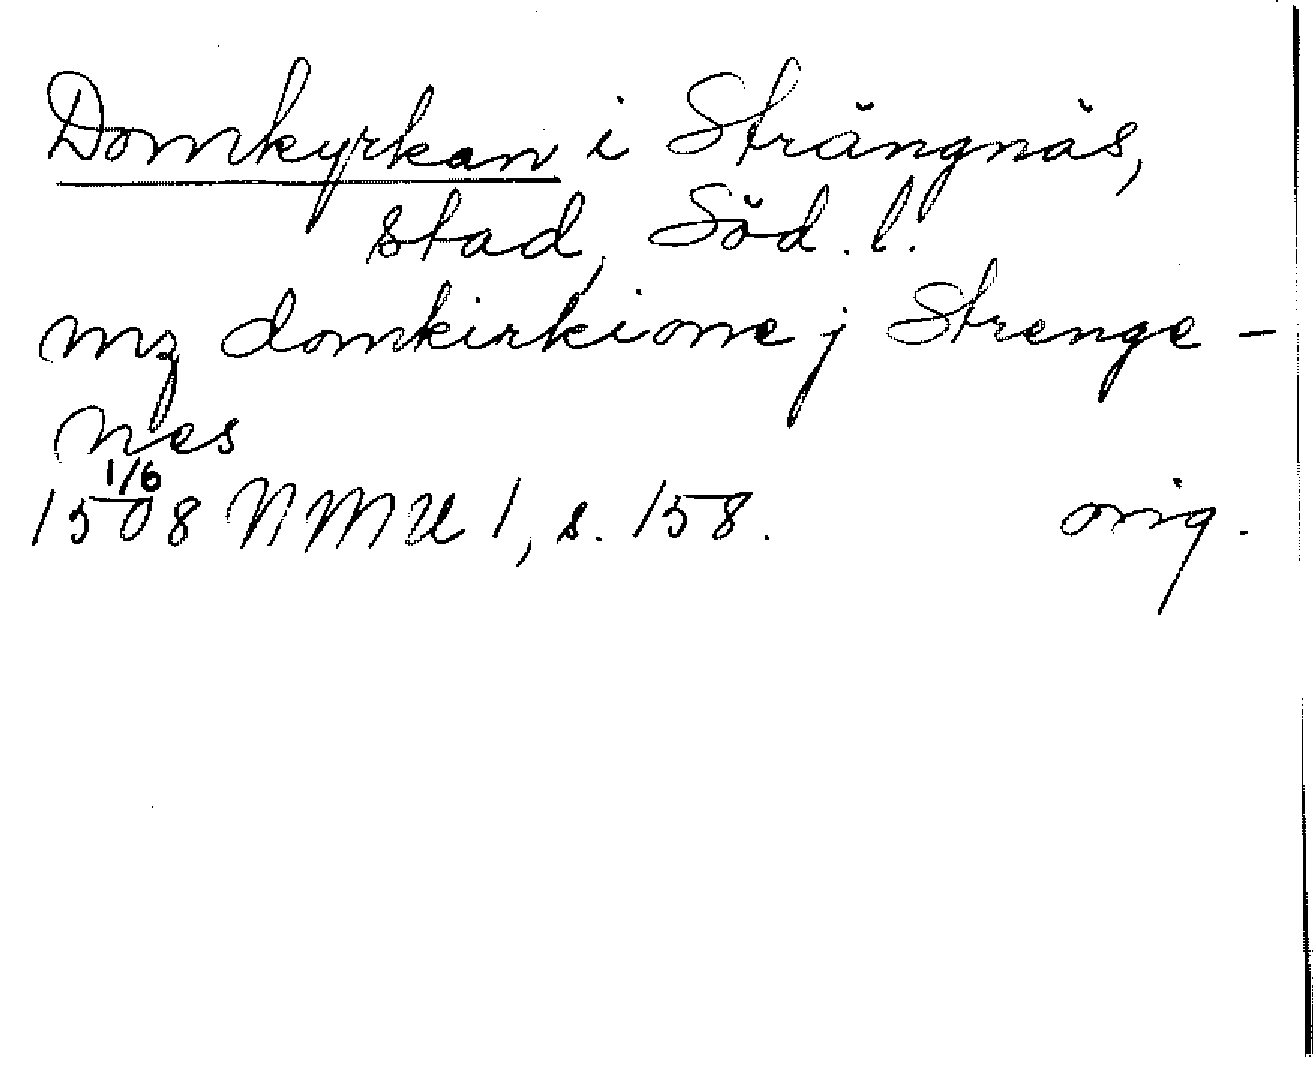 Domkyrkan i Strängnäs,
stad, Söd. l.
mz domkirkione j Strenge-
nes
1/6
1508 NMU 1, s. 158. orig.